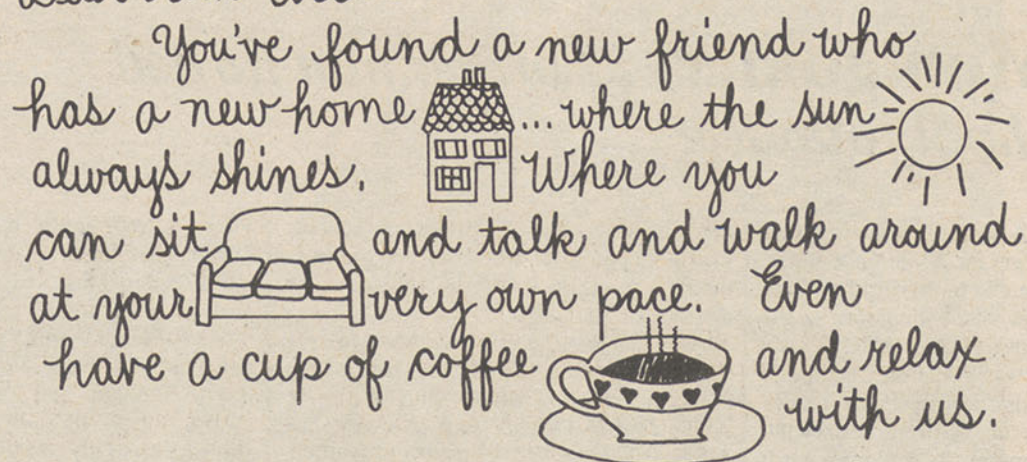 You've found a new friend who
has a new home ...where the sun
always shines. Where you
can sit and talk and walk around
at your very own pace. Even
have a cup of coffee and relax
with us.